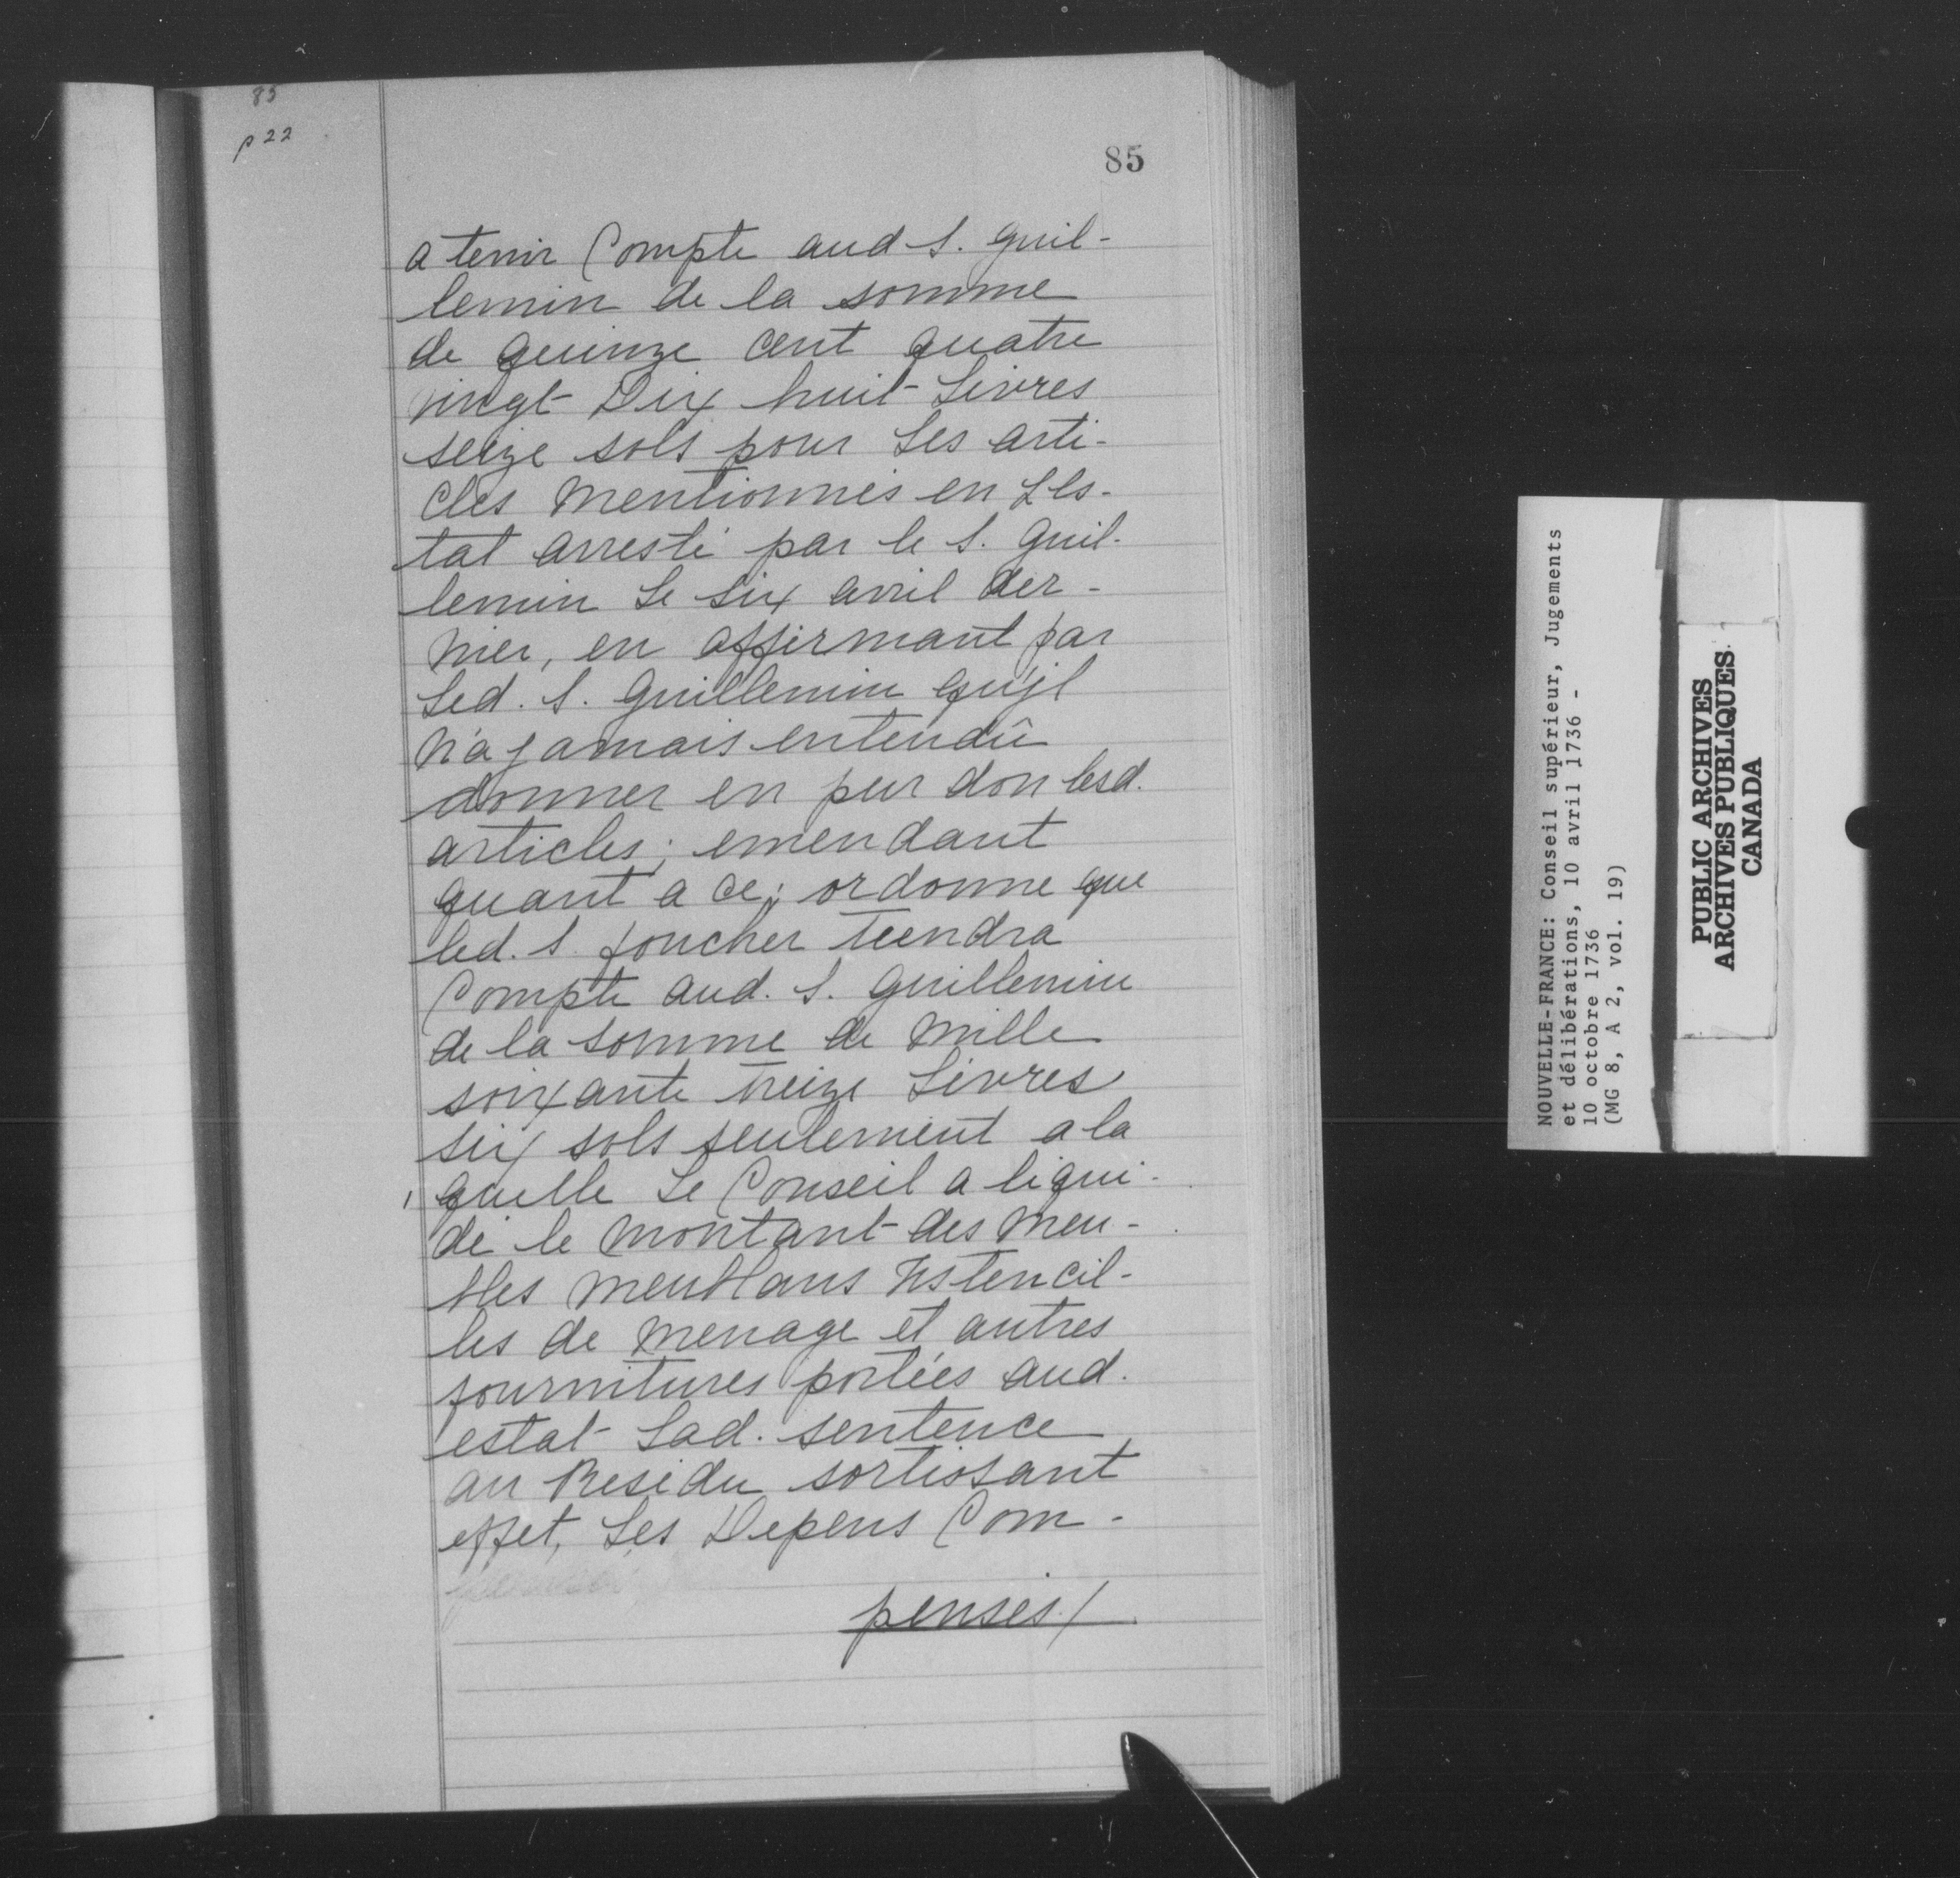 85
p 22
85
a tenir Compte aud S. guil-
lemin de la somme
de quinze cent quatre
vingt Dix huit Livres
seize sols pour Les arti-
cles mentionnés en Les-
tat arresté par le S. guil-
lemin Le six avril der-
nier, en affirmant par
Led. S. guillemin qu'jl
n'a jamais entendû
donner en pur don lesd.
articles; emendant
quant a ce; ordonne que
led. S. foucher tiendra
Compte aud. S. guillemin
de la somme de mille
soixante treize Livres
six sols seulement a la
quelle Le Conseil a liqui-
dé le montant des meu-
bles meublans Ustencil-
les de menage et autres
fournitures portées aud.
estat Lad. sentence
au Residu sortissant
effet, Les Depens Com-
pensés /
NOUVELLE-FRANCE: Conseil supérieur, Jugements
et délibérations, 10 avril 1736 -
10 octobre 1736
(MG 8, A 2, vol. 19)
PUBLIC ARCHIVES
ARCHIVES PUBLIQUES
CANADA